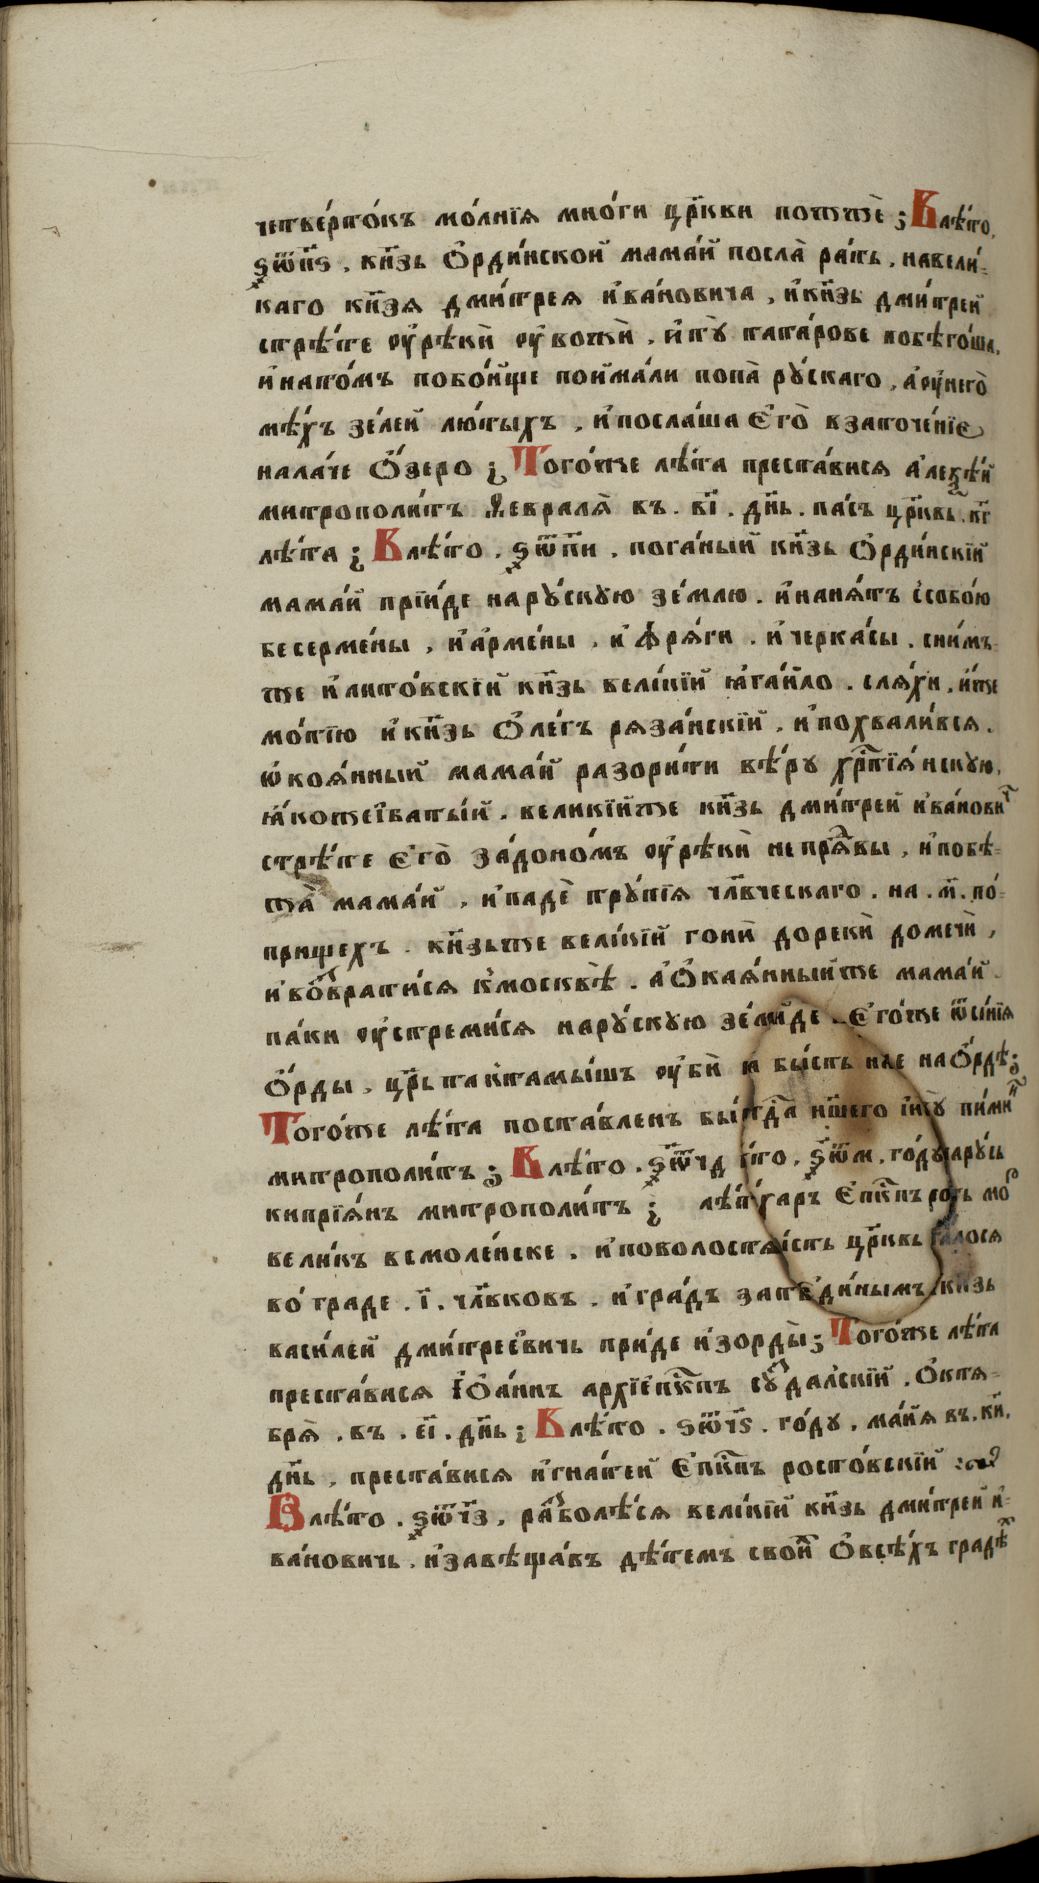 четве́рто́къ мо́лнїѧ мно́ги цр҃кви пожжѐ ; Влѣ́то,
ѕѿпѕ҃ . кн҃зь Ѻрди́нской мама́й посла̀ ра́ть . навели-
каго кн҃зѧ дми́трея и҆ва́новича , и҆кн҃зь дми́трей
стрѣ́те ѹ҆рѣкѝ ѹ҆вожѝ . и҆тꙋ̀ тата́рове побѣго́ша ,
и҆нато́мъ побо́ище пойма́ли попа̀ рꙋ́скаго , а҆ѹ҆него̀
мѣ́хъ зе́лей лю́тыхъ , и҆посла́ша Є҆го̀ взаточе́нїе
налаче Ѻ҆́зеро ; Того́же лѣ́та преста́висѧ а҆леѯѣ́й
митрополи́тъ Ѳевралѧ̀ въ . в҃і . дн҃ь . па́съ цр҃квь . к҃г
лѣ́та ; Влѣ́то . ѕѿпи҃ . пога́ный кн҃зь Ѻ҆рди́нскїй
мама́й прїи́де нарꙋ́скꙋю зе́млю . и҆наня́тъ ссобо́ю
бесерме́ны , и҆а҆рме́ны , и҆фрѧ́ги . и҆черка́сы . сни́мъ-
же и҆лито́вскїй кн҃зь вели́кїй ꙗ҆га́йло . слѧ́хи . и҆́же
мо́тїю и҆кн҃зь Ѻ҆ле́гъ рѧза́нскїй . и҆похвали́всѧ .
ѡ҆коѧ́нный мама́й разори́ти вѣ́рꙋ хрⷭ҇тїѧ́нскꙋю ,
ꙗ҆́кожеї҆баты́й . великїйже кн҃зь дми́трей и҆ва́нович
стрѣ́те Є҆го̀ за́доно́мъ ѹ҆рѣкѝ непрѧⷣвы , и҆побѣ-
жа̀ мама́й , и҆падѐ трꙋ́пїѧ чл҃вческаго . на . м҃ . по́-
прищехъ . кн҃зьже вели́кїй гонѝ дорекѝ домечѝ ,
и҆воⷥвратисѧ к҆москвѣ̀ . а҆Ѻ҆каѧ́нныйже мама́й
па́ки ѹ҆стремисѧ нарꙋ́скꙋю зе́м и҆де . Є҆го́же ѿси́нїѧ
Ѻ҆́рды . цр҃ь такта́мы́шъ ѹ҆бѝ и бы́сть на Ѻ҆́рдѣ ;
Того́же лѣ́та поста́вленъ бы́ тꙋ̀ пи́минъ
митрополи́тъ ; Влѣ́то . ѕѿчд то . ѕѿм . го́дꙋ
кипрїѧ́нъ митрополи́тъ ; лѣ́т Є҆пⷭ҇кпъ мо́ръ
вели́къ всмоле́нске . и҆поволостѧ цр҃квь лосѧ
во́ граде . і҃ . чл҃вковъ . и҆гра́дъ зат еди́нымъ кн҃зь
васи́лей дми́треевичь прїи́де и҆зорды̀ ; Того́же лѣ́та
преста́висѧ Їѻ҆а́ннъ архїепⷭ҇кпъ сꙋⷥдалскїй . Ѻ҆ктѧ-
брѧ̀ . въ . е҃і . дн҃ь ; Влѣ́то . ѕѿчѕ҃ . го́дꙋ , ма́йѧ въ . к҃и ,
дн҃ь , преста́висѧ и҆гна́тей Є҆пⷭ҇кпъ росто́вскїй :
Влѣ́то . ѕѿчз҃ , раⷥболѣ́сѧ вели́кїй кн҃зь дми́трей и҆-
ва́новичь , и҆завѣща́въ дѣ́темъ свои́м Ѻ҆всѣ́хъ градѣх